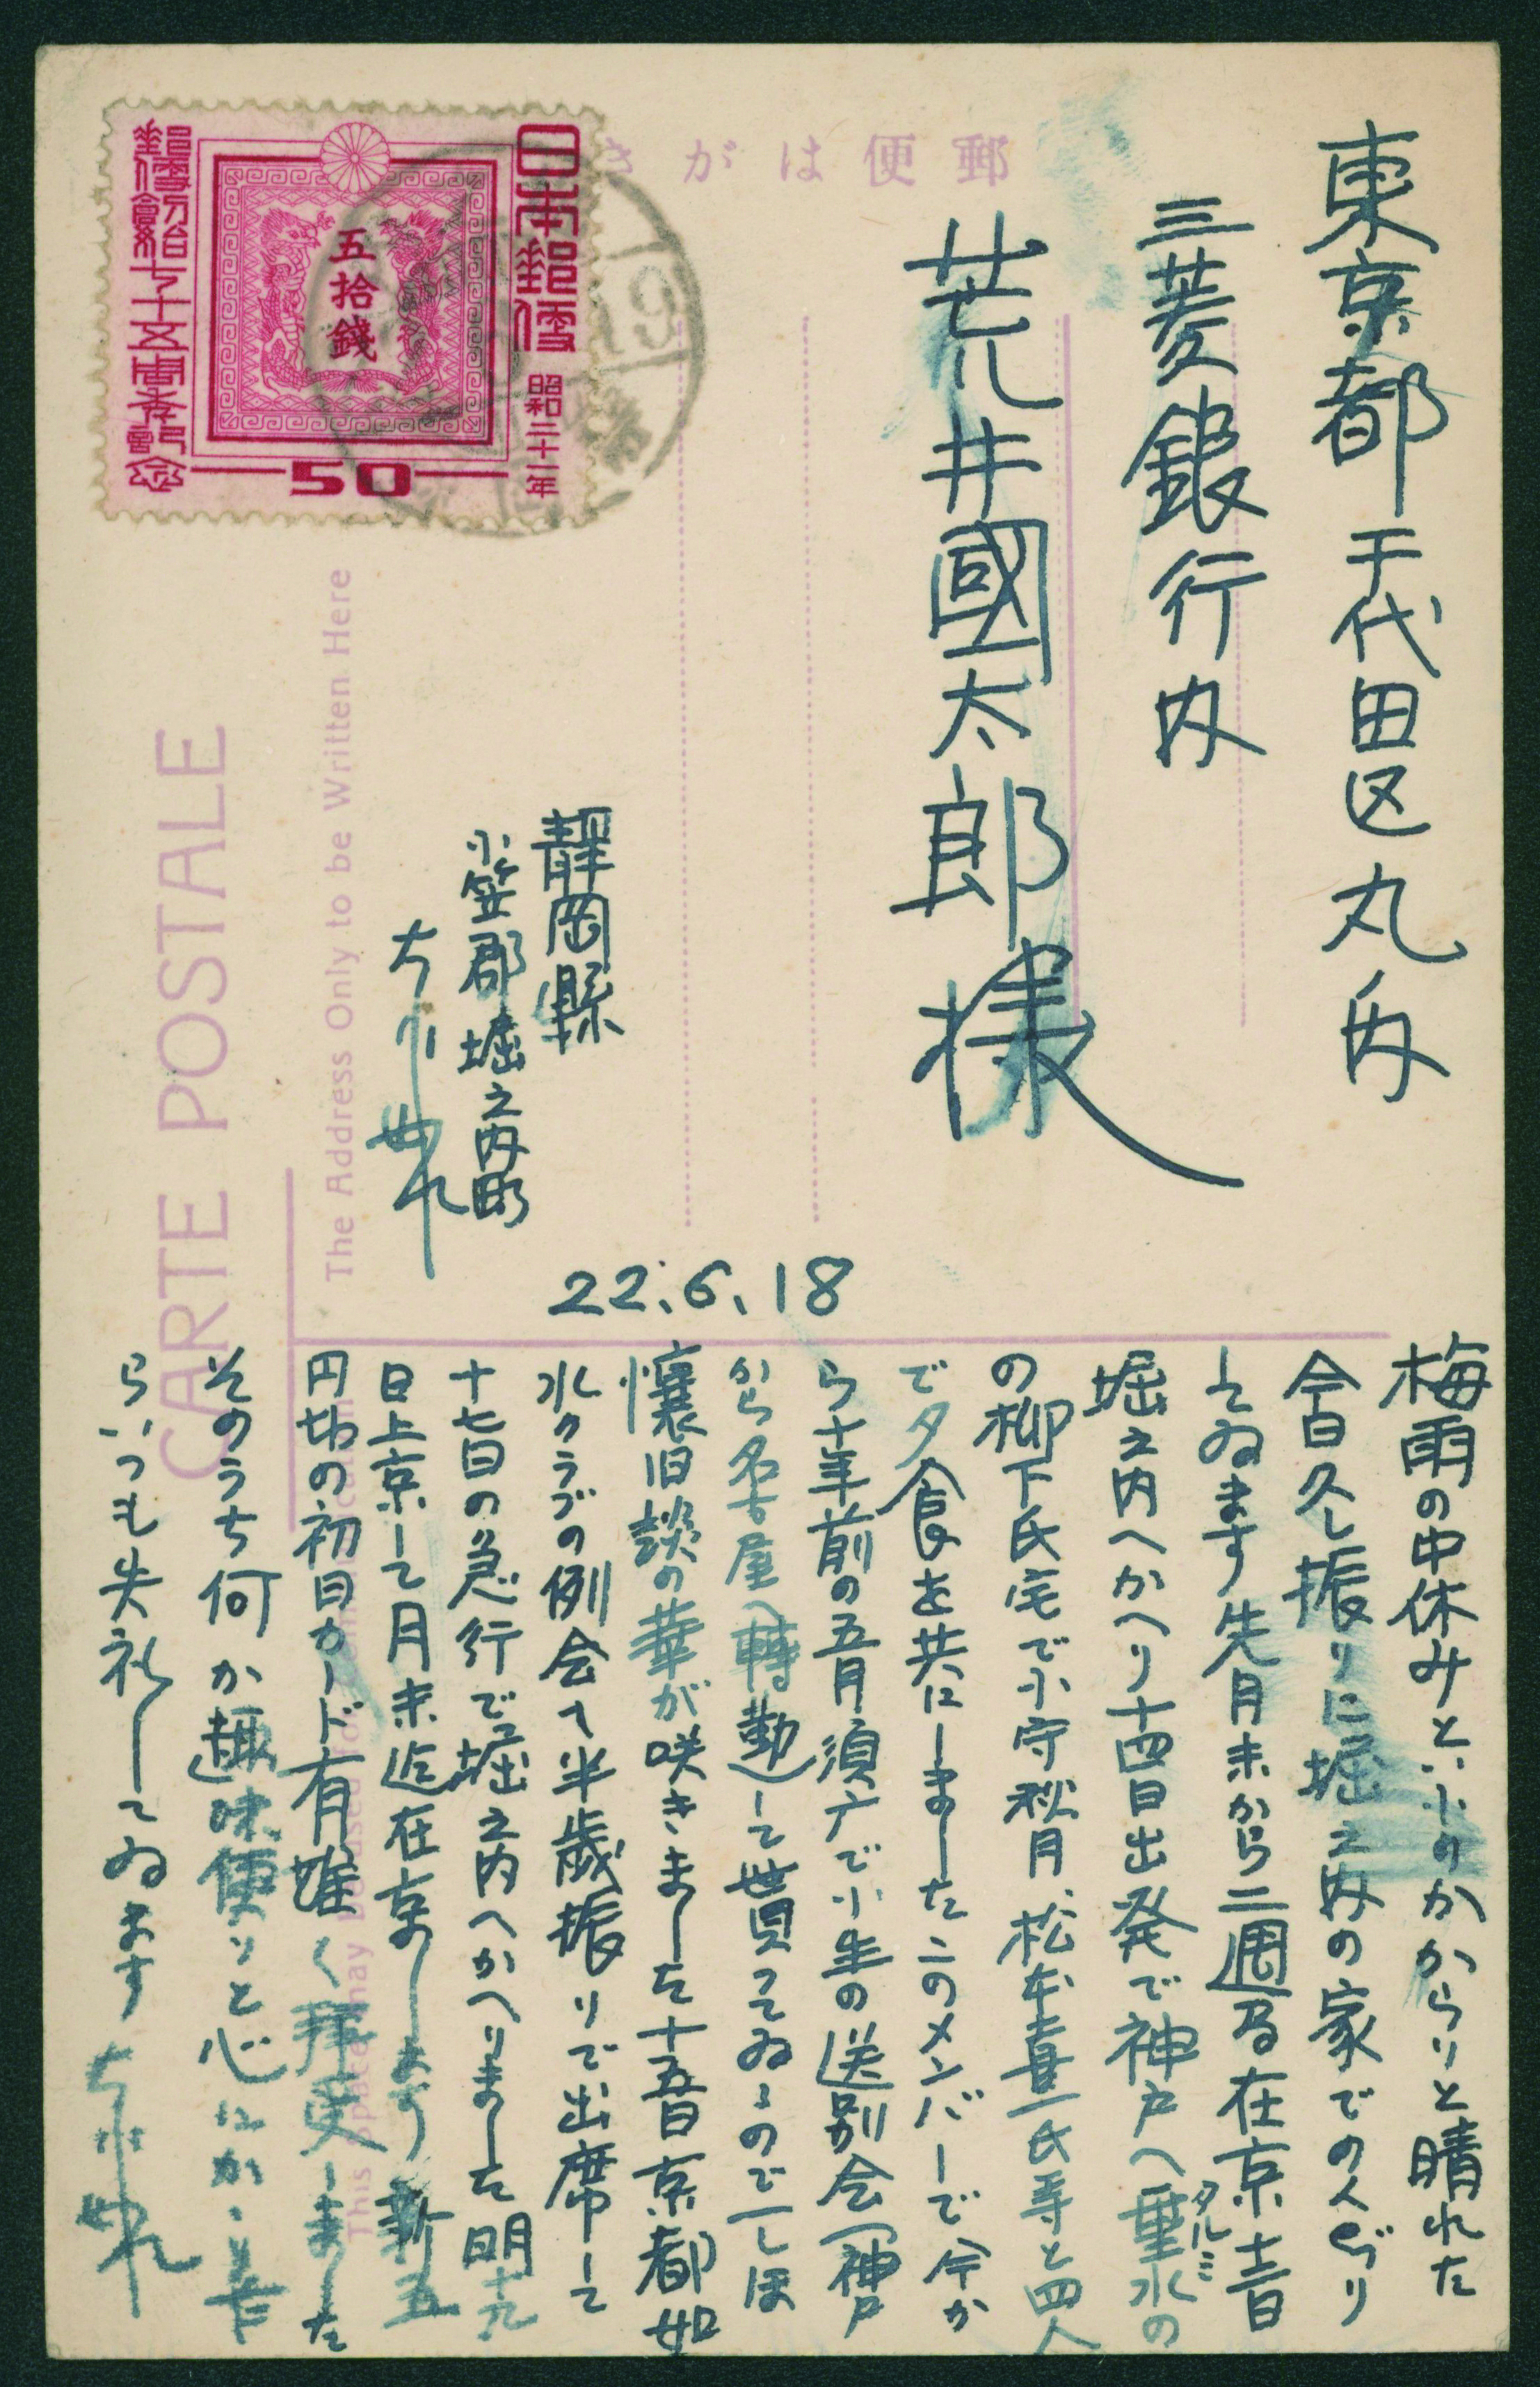 東京都千代田区丸ノ内
三菱銀行内
荒井國太郎様
郵便はがき
日本郵便 昭和二十一年
五拾錢
50
郵便創始七十五周年記念
19
静岡縣
小笠郡堀之内町
22.6.18
CARTE POSTALE
The Address Only to be Written Here
This Space may be used for Communication
梅雨の中休みといふのかからりと晴れた
今日久し振りに堀之内の家でのんびり
してゐます先月末から二週間在京十一日
堀之内へかへり十四日出発で神戸へ垂水の
タルミ
の柳下氏宅で小守秋月、松本喜一氏等と四人
で夕食を共にしましたこのメンバーで今か
ら十年前の五月須广で小生の送別会(神戸
から名古屋へ轉勤)して貰つてゐるので一しほ
懐旧談の華が咲きました十五日京都如
水クラブの例会へ半歳振りで出席して
十七日の急行で堀之内へかへりました明十九
日上京して月末迄在京します新五
円切の初日カード有難く拝受しました
そのうち何か趣味便りと心にかゝり乍
らいつも失礼してゐます